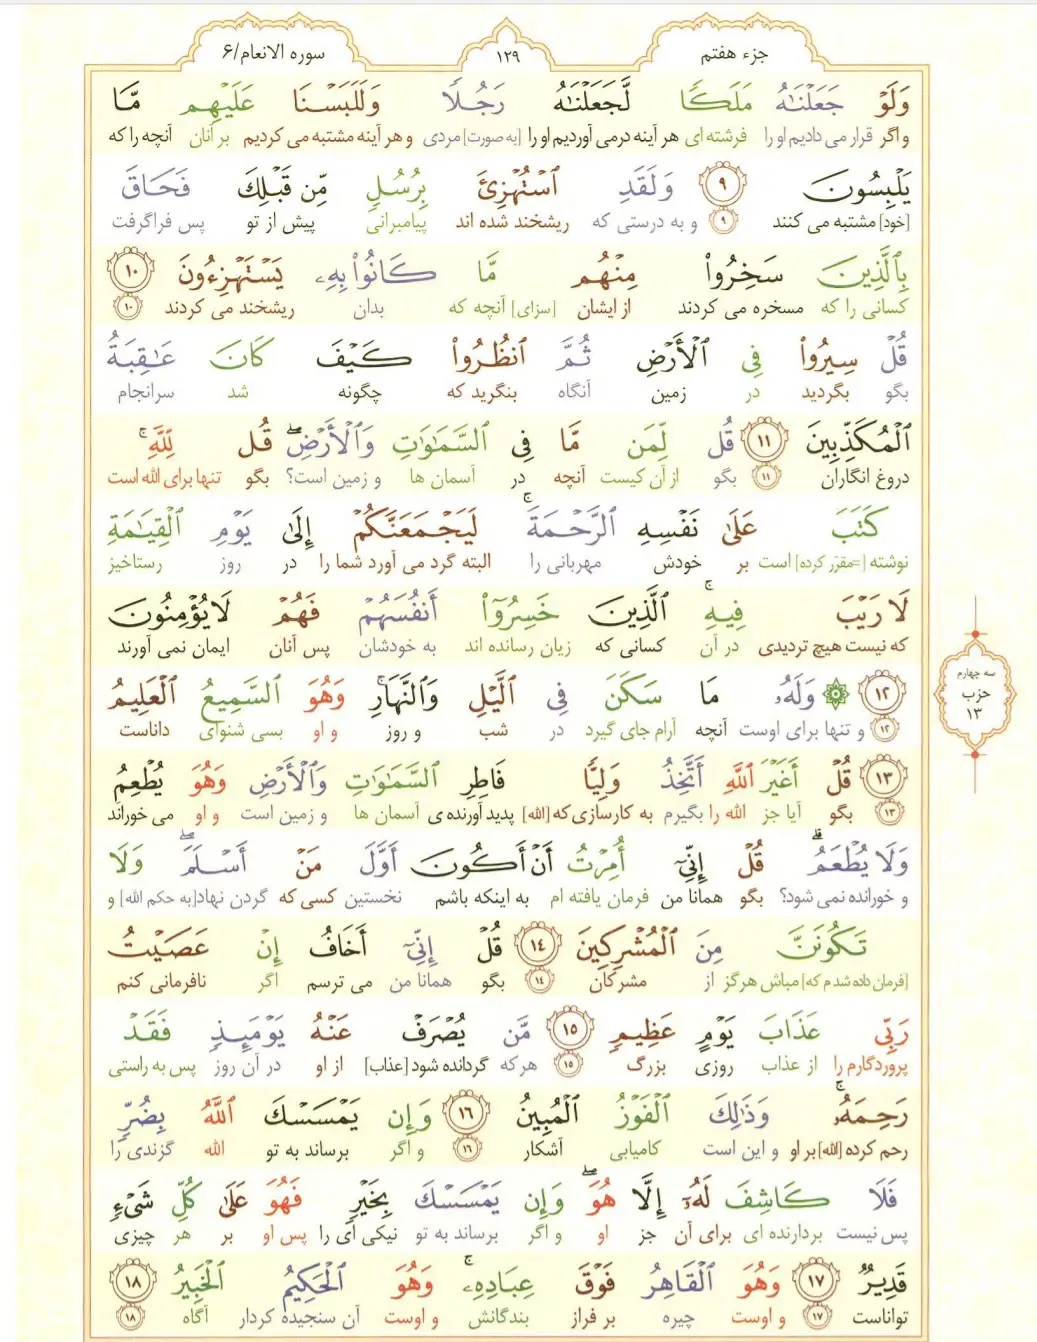 جزء هفتم
۱۲۹
سوره الانعام/۶
وَلَوۡ جَعَلۡنَٰهُ مَلَكٗا لَّجَعَلۡنَٰهُ رَجُلٗا وَلَلَبَسۡنَا عَلَيۡهِم مَّا
و اگر قرار می دادیم او را فرشته ای هر آینه درمی آوردیم او را [به صورت] مردی و هر آینه مشتبه می کردیم بر آنان آنچه را که
يَلۡبِسُونَ ۹ وَلَقَدِ ٱسۡتُهۡزِئَ بِرُسُلٖ مِّن قَبۡلِكَ فَحَاقَ
[خود] مشتبه می کنند ۹ و به درستی که ریشخند شده اند پیامبرانی پیش از تو پس فراگرفت
بِٱلَّذِينَ سَخِرُواْ مِنۡهُم مَّا كَانُواْ بِهِۦ يَسۡتَهۡزِءُونَ ۱۰
کسانی را که مسخره می کردند از ایشان [سزای] آنچه که بدان ریشخند می کردند ۱۰
قُلۡ سِيرُواْ فِي ٱلۡأَرۡضِ ثُمَّ ٱنظُرُواْ كَيۡفَ كَانَ عَٰقِبَةُ
بگو بگردید در زمین آنگاه بنگرید که چگونه شد سرانجام
ٱلۡمُكَذِّبِينَ ۱۱ قُل لِّمَن مَّا فِي ٱلسَّمَٰوَٰتِ وَٱلۡأَرۡضِۖ قُل لِّلَّهِۚ
دروغ انگاران ۱۱ بگو از آن کیست آنچه در آسمان ها و زمین است؟ بگو تنها برای الله است
كَتَبَ عَلَىٰ نَفۡسِهِ ٱلرَّحۡمَةَۚ لَيَجۡمَعَنَّكُمۡ إِلَىٰ يَوۡمِ ٱلۡقِيَٰمَةِ
نوشته [=مقرّر کرده] است بر خودش مهربانی را البته گرد می آورد شما را در روز رستاخیز
لَا رَيۡبَ فِيهِۚ ٱلَّذِينَ خَسِرُوٓاْ أَنفُسَهُمۡ فَهُمۡ لَا يُؤۡمِنُونَ
که نیست هیچ تردیدی در آن کسانی که زیان رسانده اند به خودشان پس آنان ایمان نمی آورند
۱۲ ۞ وَلَهُۥ مَا سَكَنَ فِي ٱلَّيۡلِ وَٱلنَّهَارِۚ وَهُوَ ٱلسَّمِيعُ ٱلۡعَلِيمُ
۱۲ و تنها برای اوست آنچه آرام جای گیرد در شب و روز و او بسی شنوای داناست
سه چهارم
حزب
۱۳
۱۳ قُلۡ أَغَيۡرَ ٱللَّهِ أَتَّخِذُ وَلِيّٗا فَاطِرِ ٱلسَّمَٰوَٰتِ وَٱلۡأَرۡضِ وَهُوَ يُطۡعِمُ
۱۳ بگو آیا جز الله را بگیرم به کارسازی که [الله] پدید آورنده ی آسمان ها و زمین است و او می خوراند
وَلَا يُطۡعَمُۗ قُلۡ إِنِّيٓ أُمِرۡتُ أَنۡ أَكُونَ أَوَّلَ مَنۡ أَسۡلَمَۖ وَلَا
و خورانده نمی شود؟ بگو همانا من فرمان یافته ام به اینکه باشم نخستین کسی که گردن نهاد [به حکم الله] و
تَكُونَنَّ مِنَ ٱلۡمُشۡرِكِينَ ۱۴ قُلۡ إِنِّيٓ أَخَافُ إِنۡ عَصَيۡتُ
[فرمان داده شدم که] مباش هرگز از مشرکان ۱۴ بگو همانا من می ترسم اگر نافرمانی کنم
رَبِّي عَذَابَ يَوۡمٍ عَظِيمٖ ۱۵ مَّن يُصۡرَفۡ عَنۡهُ يَوۡمَئِذٖ فَقَدۡ
پروردگارم را از عذاب روزی بزرگ ۱۵ هر که گردانده شود [عذاب] از او در آن روز پس به راستی
رَحِمَهُۥۚ وَذَٰلِكَ ٱلۡفَوۡزُ ٱلۡمُبِينُ ۱۶ وَإِن يَمۡسَسۡكَ ٱللَّهُ بِضُرّٖ
رحم کرده [الله] بر او و این است کامیابی آشکار ۱۶ و اگر برساند به تو الله گزندی را
فَلَا كَاشِفَ لَهُۥٓ إِلَّا هُوَۖ وَإِن يَمۡسَسۡكَ بِخَيۡرٖ فَهُوَ عَلَىٰ كُلِّ شَيۡءٖ
پس نیست بردارنده ای برای آن جز او و اگر برساند به تو نیکی ای را پس او بر هر چیزی
قَدِيرٞ ۱۷ وَهُوَ ٱلۡقَاهِرُ فَوۡقَ عِبَادِهِۦۚ وَهُوَ ٱلۡحَكِيمُ ٱلۡخَبِيرُ ۱۸
تواناست ۱۷ و اوست چیره بر فراز بندگانش و اوست آن سنجیده کردار آگاه ۱۸